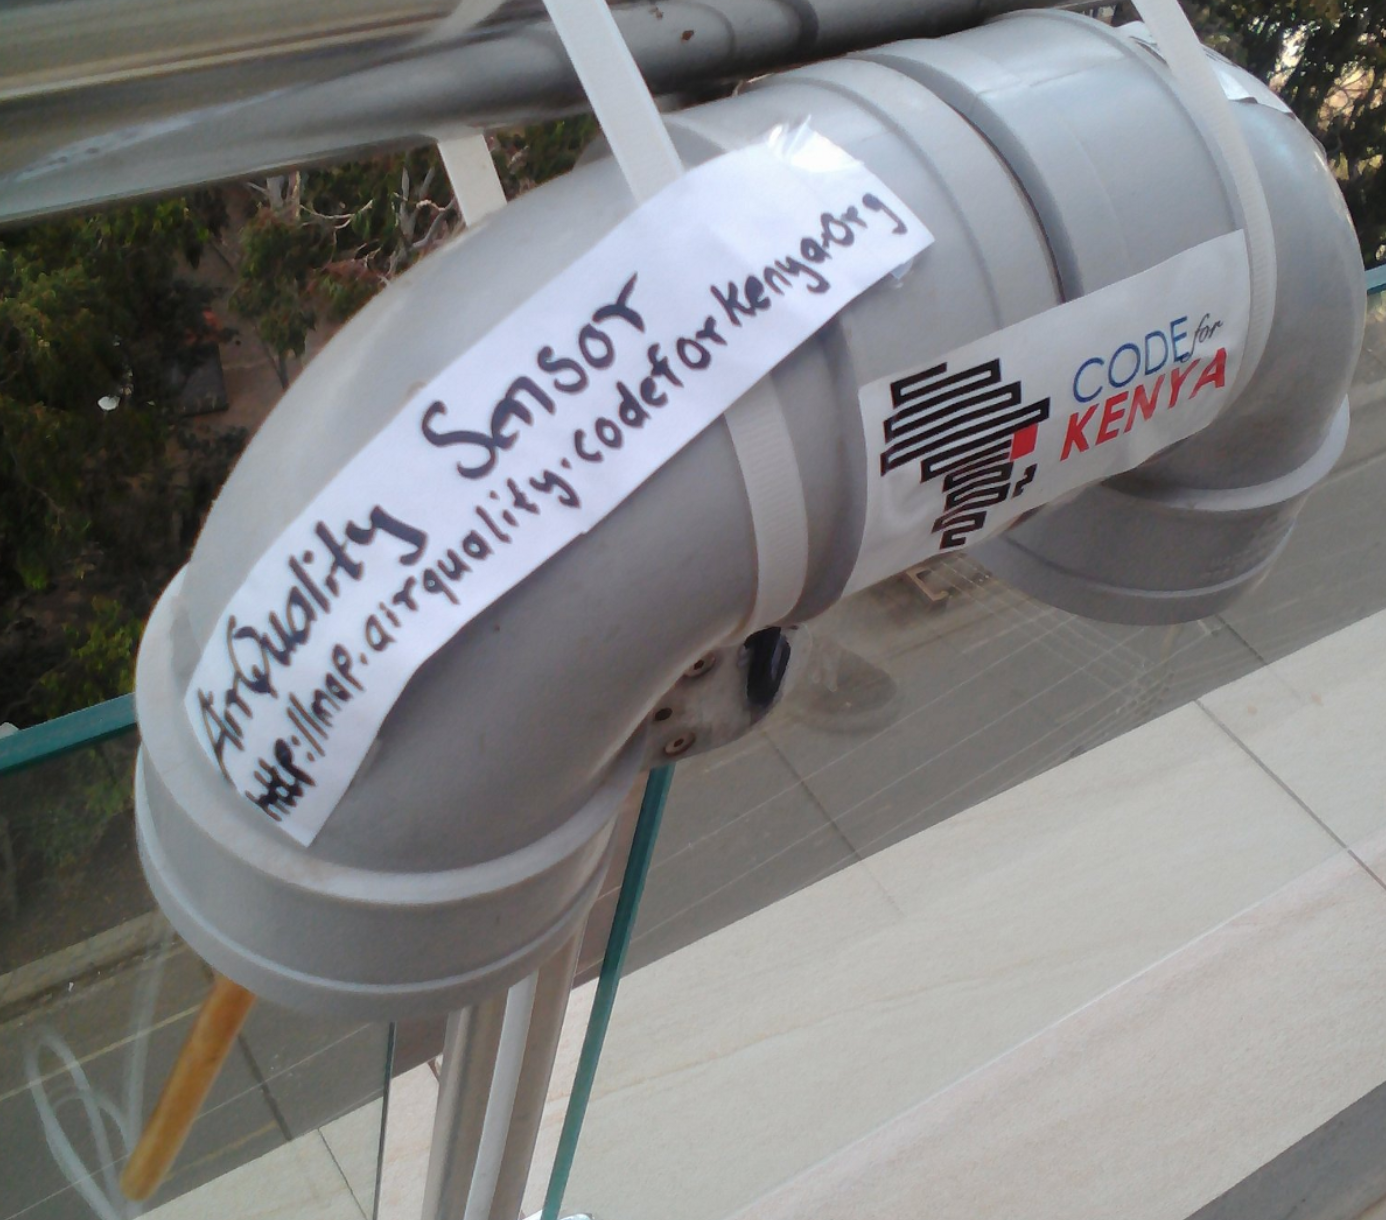 AirQuality Sensor
http://map.airquality.codeforkenya.org
CODE for
KENYA